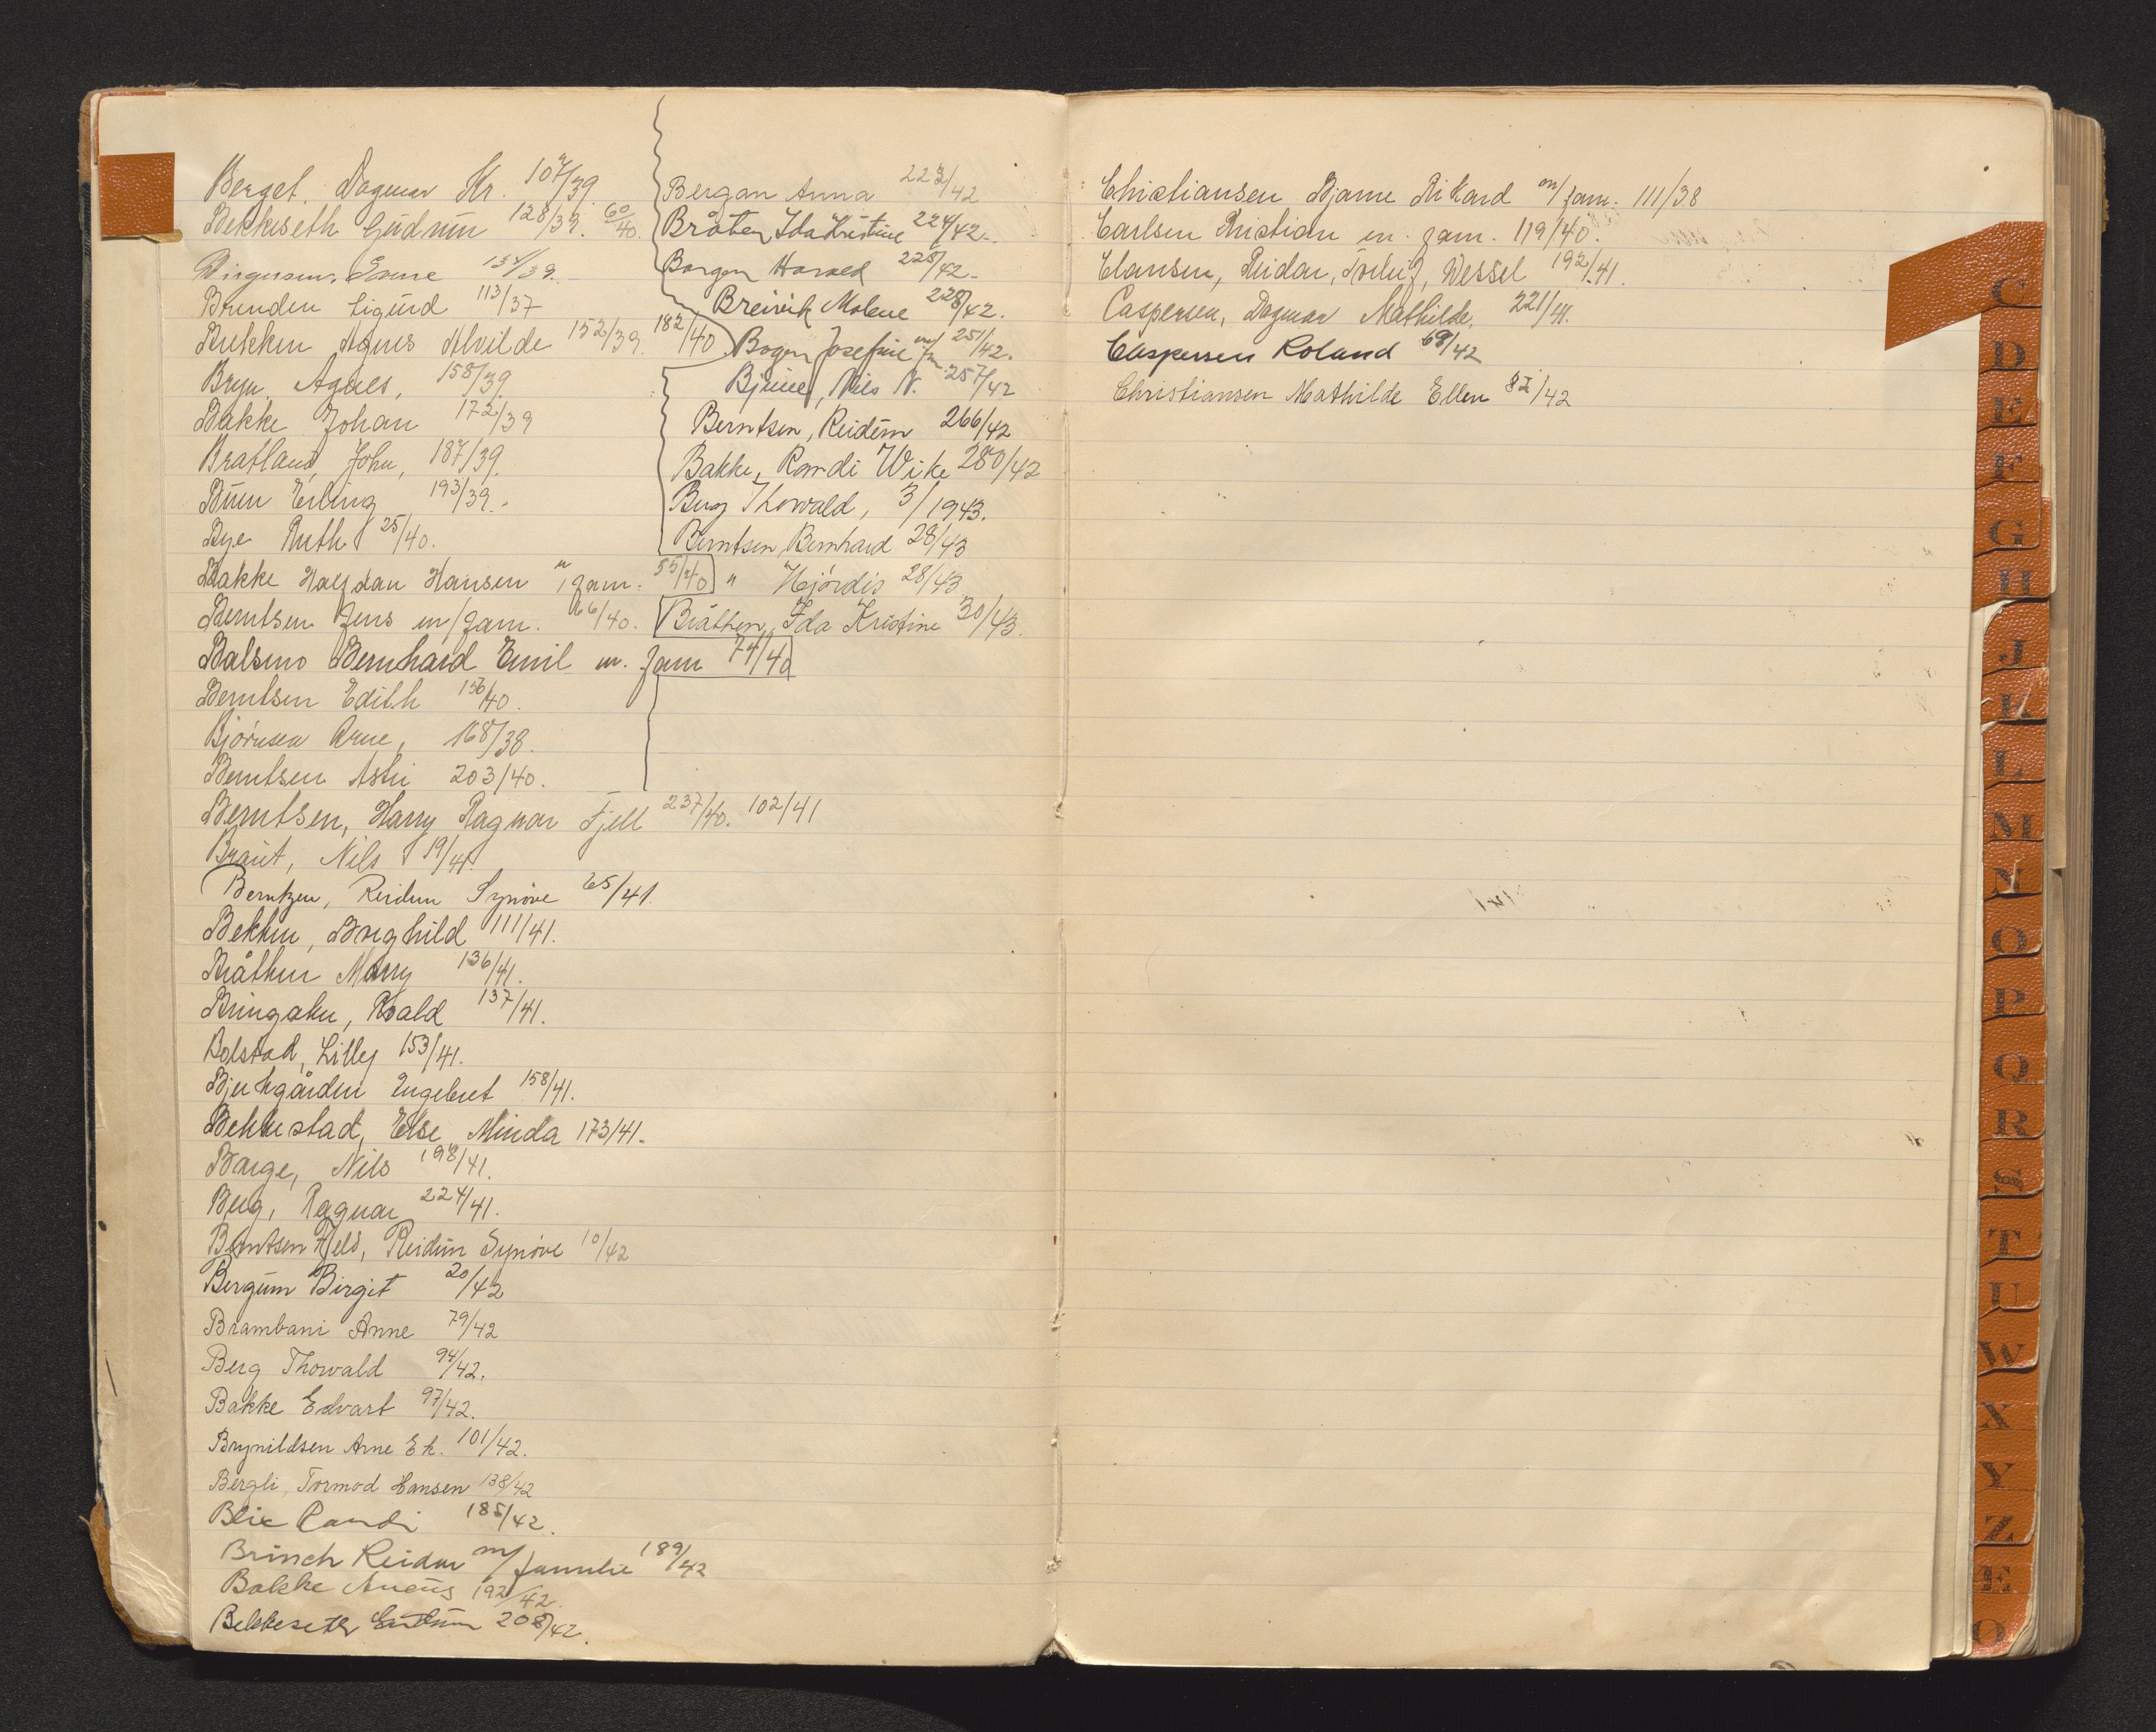 Berget, Dagmar Kr. 107/39.
Bekkeseth Gudrun 128/39. 60/40.
134/39.
Brunden Sigurd 113/37
Bekken Agnes Alvilde 152/39. 182/40
Bryn, Agnes, 158/39
Bakke Johan 172/39
Bratland, John, 187/39.
Buen Erling 193/39.
Bye Ruth 25/40.
Bakke Halfdan Hansen m/fam. 55/40
Berntsen Jens m/fam. 66/40.
Balsmo Bernhard Emil m. fam 74/40
Berntsen Edith 156/40.
Bjørnsen Arne, 168/38.
Berntsen Astri 203/40.
Berntsen, Harry Ragnar Fjell 237/40. 102/41
Braut, Nils 19/41.
Berntzen, Reidun Synøve 65/41.
Bekken, Borghild 111/41.
Bråthen Marry 136/41.
Bringaker, Roald 137/41.
Bolstad, Lilly 153/41.
Bjerkgården Engebret 158/41.
Bekkestad, Else Minda 173/41.
Barge, Nils 198/41.
Berg, Ragnar 224/41.
Berntsen Fjeld, Reidun Synøve 10/42
Bergum Birgit 20/42
Brambani Anne 79/42
Berg Thorvald 94/42.
Bakke Edvart 97/42.
Brynildsen Arne Ek. 101/42.
Bergli, Tormod Hansen 138/42
Blix Randi 185/42.
Brinch Reidar m/familie 189/42
Bakke 192/42.
Bekkeseth Gudrun 208/42.
Bergan Anna 223/42
Bråten Ida Kristine 224/42.
Borgen Harald 225/42.
Breivik Molene 228/42.
Bogen Josefine m/fm 251/42.
Nils N. 257/42
Berntsen, Reidun 266/42
Bakke, Randi Wike 280/42
Berg Thorvald, 3/1943.
Berntsen, Bernhard 28/43
" Hjørdis 28/43
Bråthen, Ida Kristine 30/43.
Christiansen, Bjarne Rikard m/fam. 111/38
Carlsen Kristian m. fam. 119/40.
Clausen, Reidar, Wessel 192/41.
Caspersen, Dagmar Mathilde. 221/41.
Caspersen Roland 69/42
Christiansen Mathilde Ellen 82/42
C
D
E
F
G
H
J
K
L
M
N
O
P
Q
R
S
T
U
W
X
Y
Z
Æ
Ø